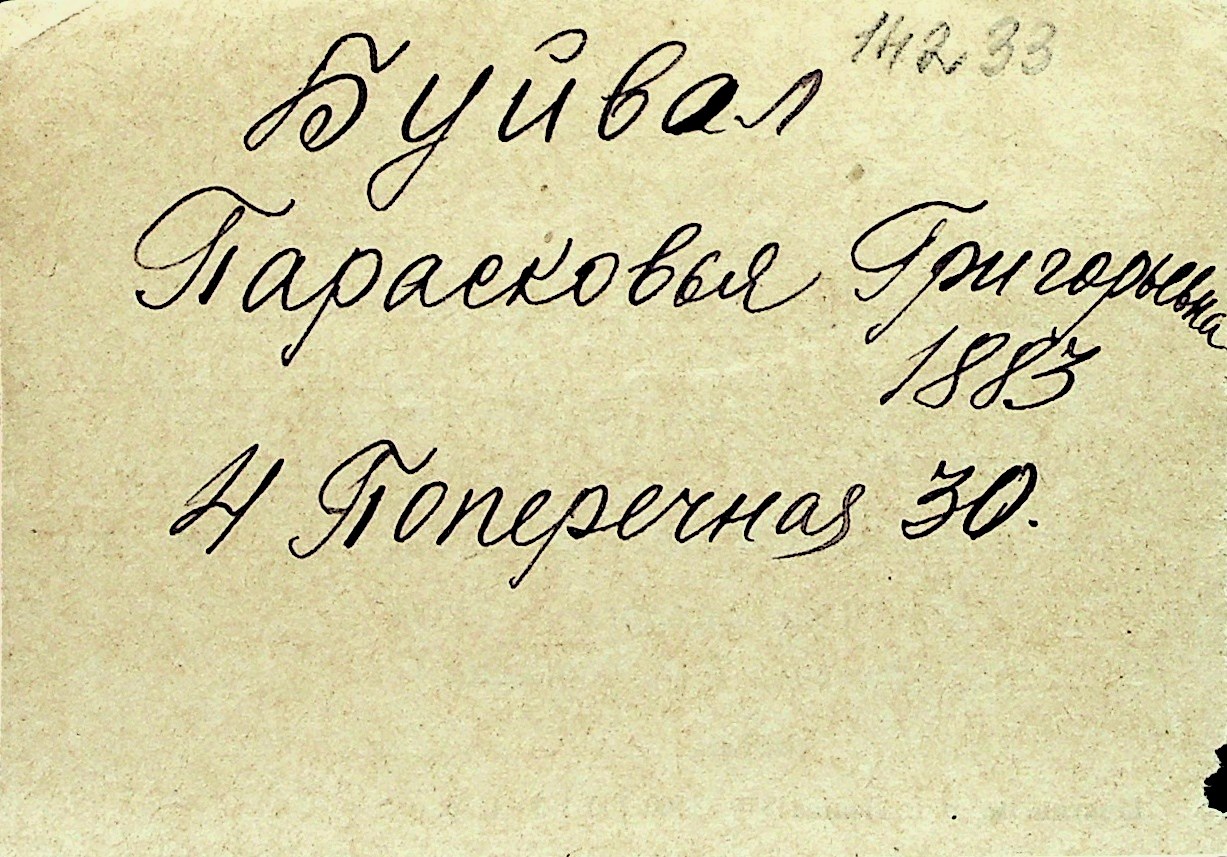 14233
Буйвал
Парасковья Григорьевна
1883
4 Поперечная 30.